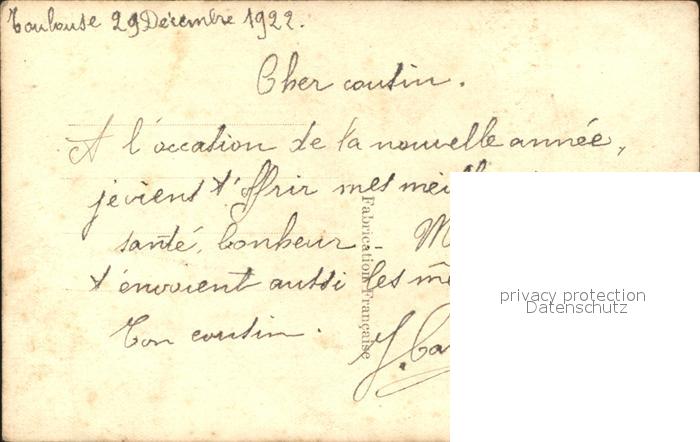 Toulouse 29 Décembre 1922.
Cher cousin.
A l'occasion de la nouvelle année,
je viens t'offrir mes
santé, bonheur -
t'envoient aussi les
Ton cousin.
Fabrication Française
privacy protection
Datenschutz